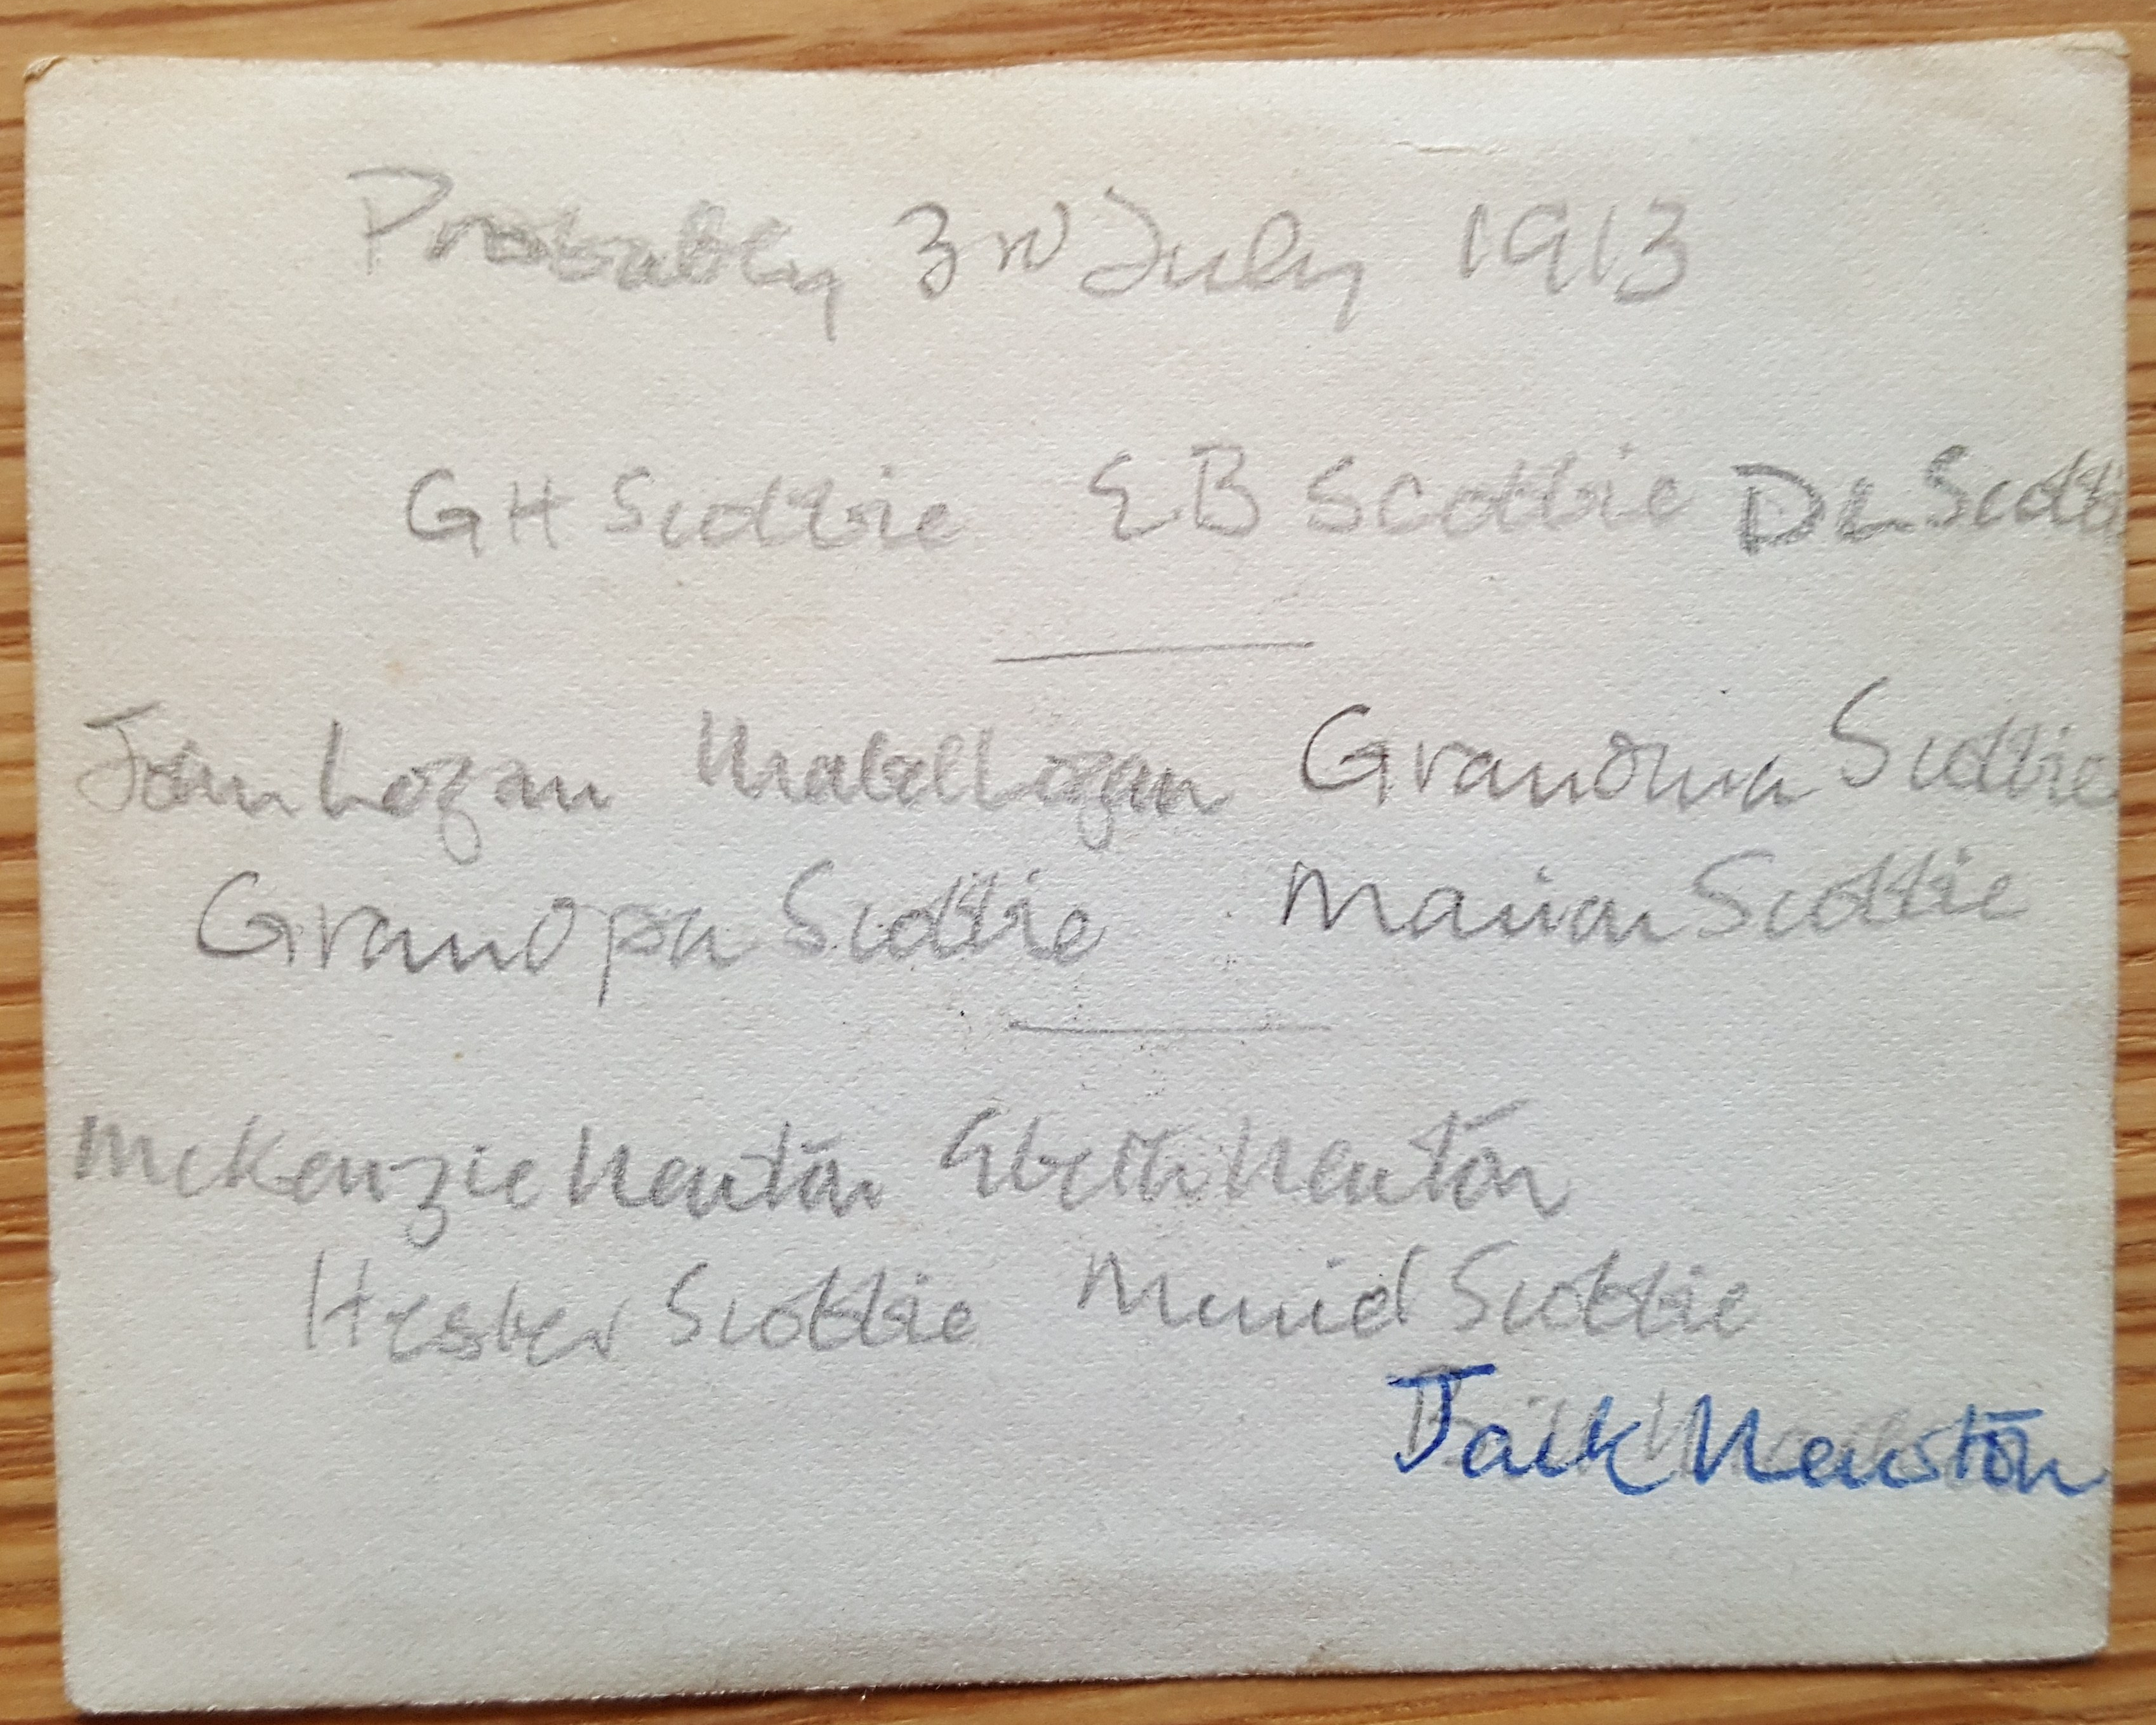 Probably 3rd July 1913
GH Scottie EB Scottie DL Scott
John Logan Mabel Logan Grandma Scottie
Grandpa Scottie Marian Scottie
McKenzie Newton Newton
Hester Scottie Muriel Scottie
Jack Newton